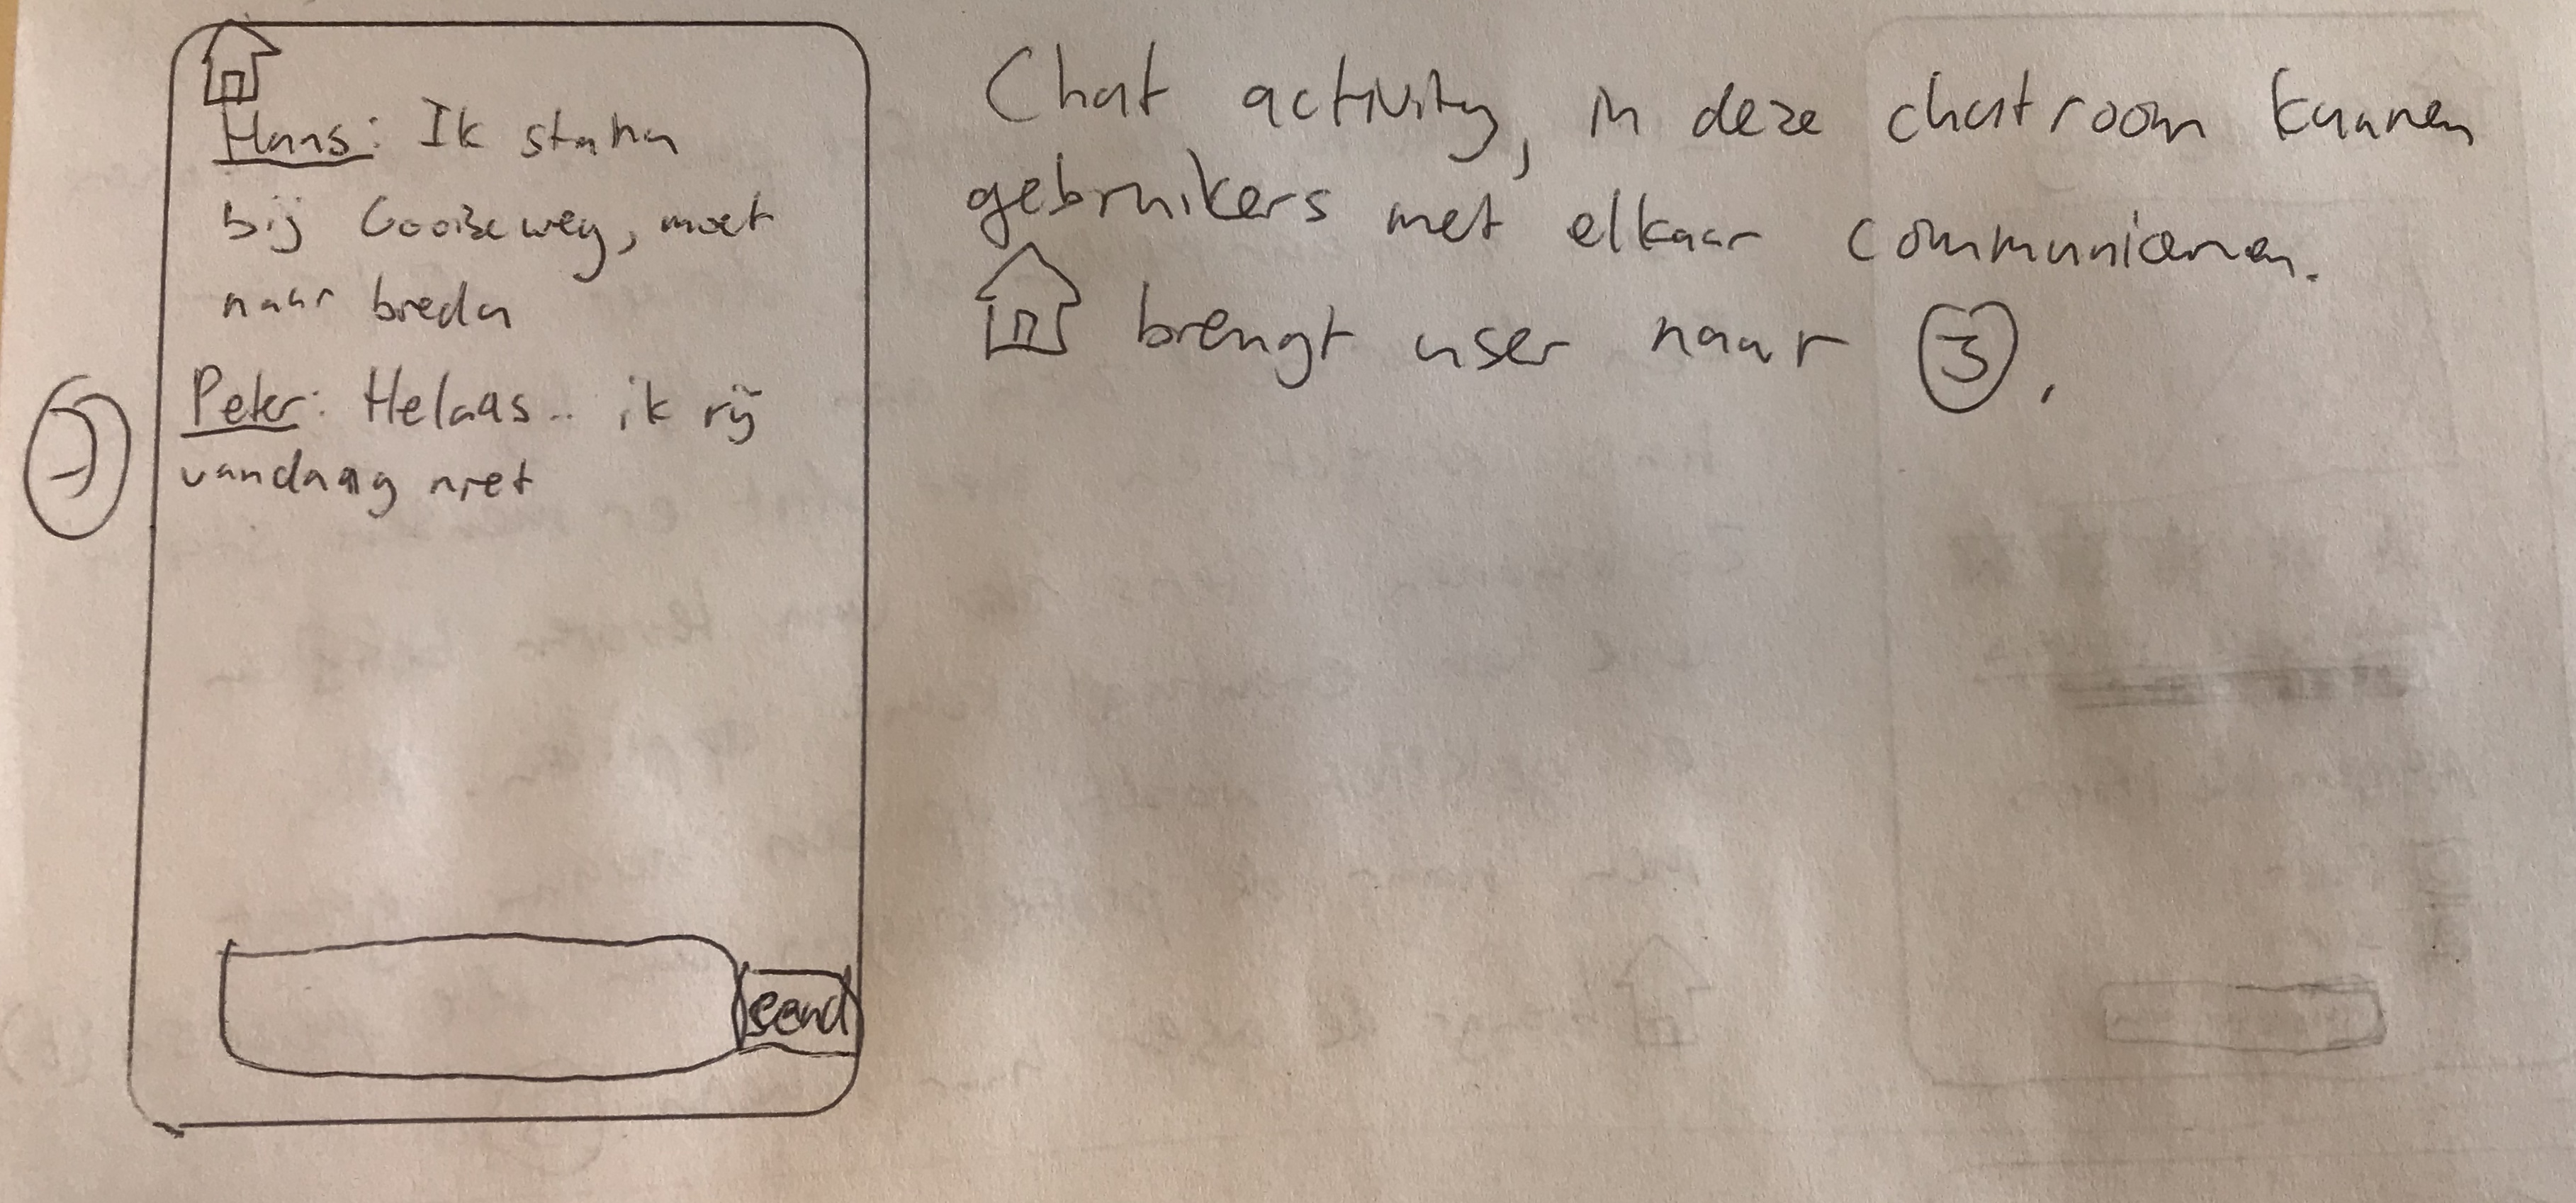 Hans: Ik sta nu
bij Gooiseweg, moet
naar breda
Peter: Helaas.. ik rij
vandaag niet
send
Chat activity, in deze chatroom kunnen
gebruikers met elkaar communiceren.
brengt user naar 3.